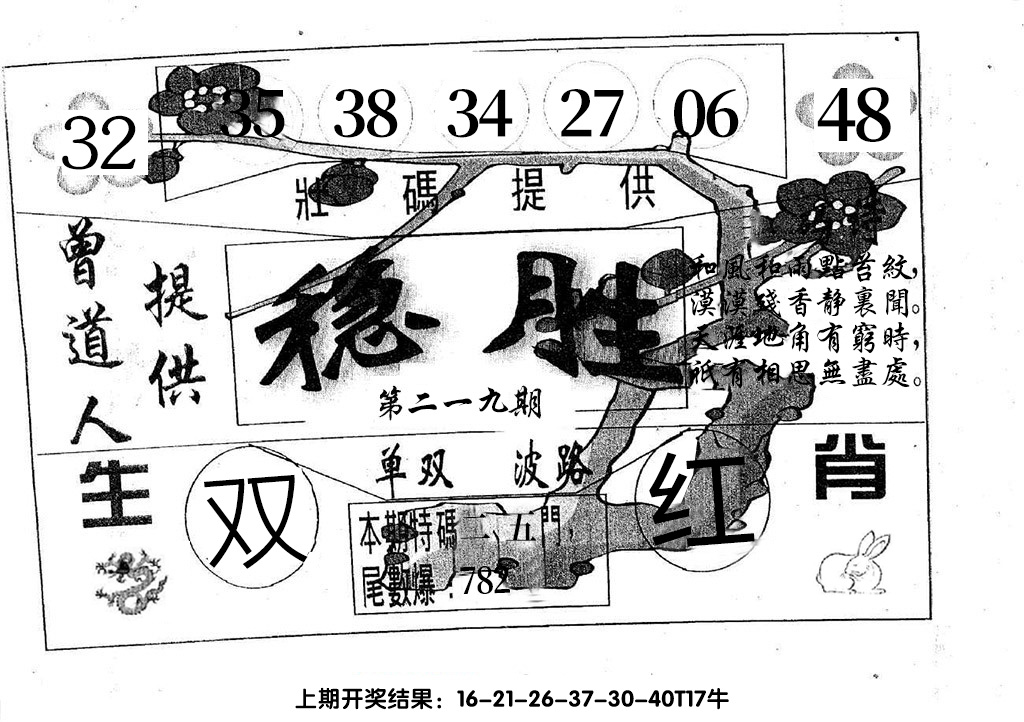 32 35 38 34 27 06 48
壯碼提供
曾道人
提供
稳胜
第二一九期
特
和風和雨點苔紋，
漠漠殘香静裏聞。
天涯地角有窮時，
祇有相思無盡處。
单双 波路
生肖
双
红
本期特碼二、五門，
尾數爆：782
上期开奖结果：16-21-26-37-30-40T17牛